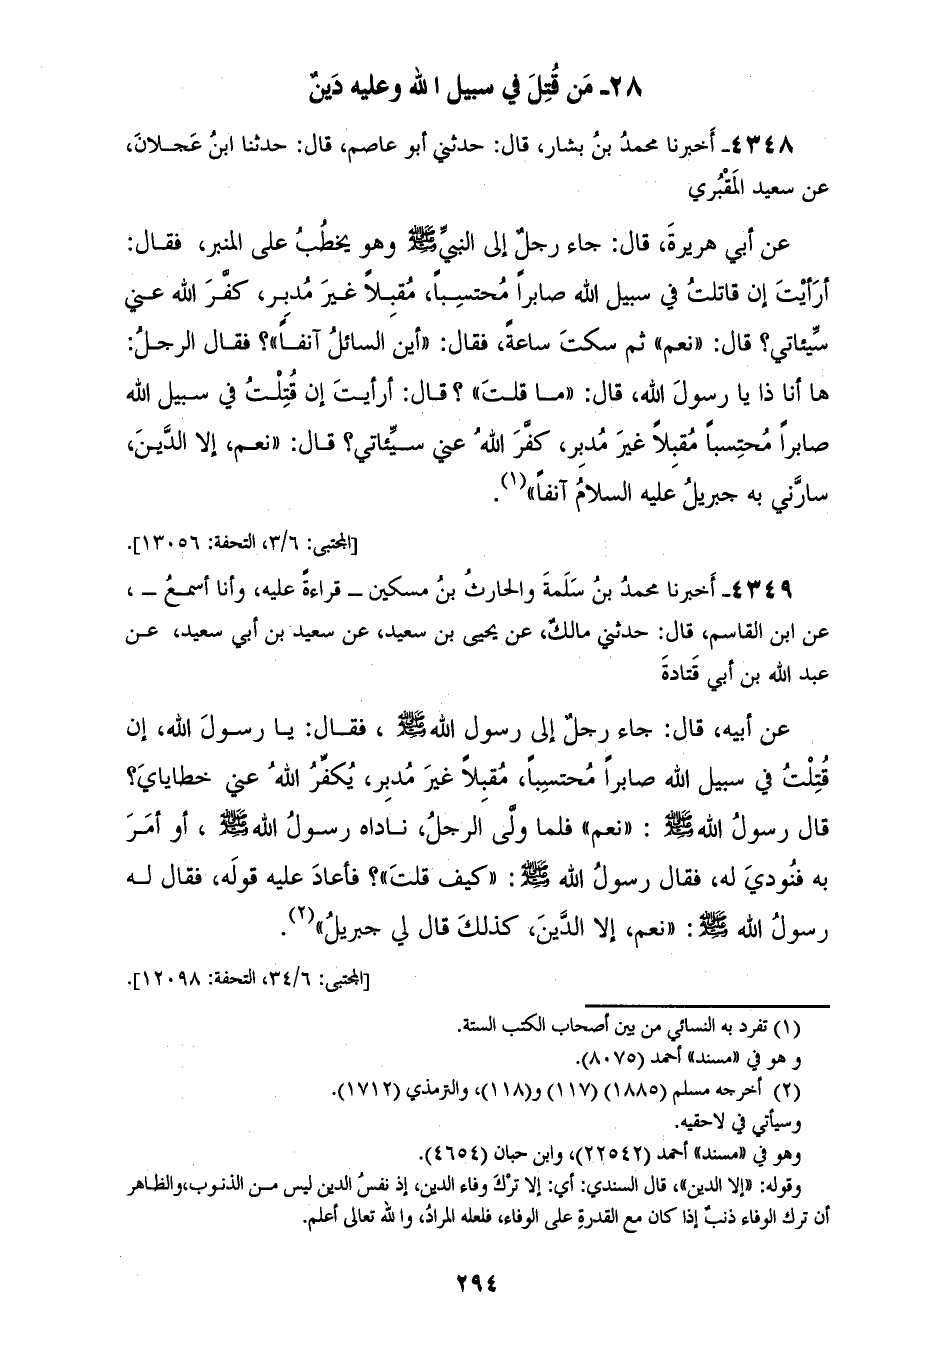 ٢٨ـ مَن قُتِلَ في سبيل الله وعليه دَينٌ
٤٣٤٨ـ أَخبرنا محمدُ بنُ بشار، قال: حدثني أبو عاصم، قال: حدثنا ابنُ عَجـلان،
عن سعيد المَقْبُري
عن أبي هريرةَ، قال: جاء رجلٌ إلى النبيِّ ﷺ وهو يخطُبُ على المنبر، فقـال:
أرَأيْتَ إن قاتلتُ في سبيل الله صابراً مُحتسِـباً، مُقبِـلاً غـيرَ مُدبِـر، كفَّـرَ الله عـني
سيِّئاتي؟ قال: «نعم» ثم سكتَ ساعةً، فقال: «أين السائلُ آنفـاً»؟ فقـال الرجـلُ:
ها أنا ذا يا رسولَ الله، قال: «مـا قلـتَ» ؟ قـال: أرأيـتَ إن قُتِلْـتُ في سـبيل الله
صابراً مُحتسِباً مُقبِلاً غيرَ مُدبِر، كفَّرَ اللهُ عني سـيِّئاتي؟ قـال: «نعـم، إلا الدَّيـنَ،
سارَّني به جبريلُ عليه السلامُ آنفاً»(١).
[المجتبى: ٣/٦، التحفة: ١٣٠٥٦].
٤٣٤٩ـ أَخبرنا محمدُ بنُ سَلَمةَ والحارثُ بنُ مسكين ـ قراءةً عليه، وأنا أسمعُ ـ ،
عن ابن القاسم، قال: حدثني مالكٌ، عن يحيى بن سعيد، عن سعيد بن أبي سعيد، عـن
عبد الله بن أبي قَتادةَ
عن أبيه، قال: جاء رجلٌ إلى رسول الله ﷺ ، فقـال: يـا رسـولَ الله، إن
قُتِلْتُ في سبيل الله صابراً مُحتسِباً، مُقبِلاً غيرَ مُدبِر، يُكفِّرُ اللهُ عني خطاياي؟
قال رسولُ الله ﷺ : «نعم» فلما ولَّى الرجلُ، نـاداه رسـولُ الله ﷺ ، أو أمَرَ
به فنُوديَ له، فقال رسولُ الله ﷺ: «كيف قلتَ»؟ فأعادَ عليه قولَه، فقال لـه
رسولُ الله ﷺ: «نعم، إلا الدَّينَ، كذلكَ قال لي جبريلُ»(٢).
[المجتبى: ٣٤/٦، التحفة: ١٢٠٩٨].
(١) تفرد به النسائي من بين أصحاب الكتب الستة.
و هو في «مسند» أحمد (٨٠٧٥).
(٢) أخرجه مسلم (١٨٨٥) (١١٧) و(١١٨)، والترمذي (١٧١٢).
وسيأتي في لاحقيه.
وهو في «مسند» أحمد (٢٢٥٤٢)، وابن حبان (٤٦٥٤).
وقوله: «إلا الدين»، قال السندي: أي: إلا ترْكَ وفاء الدين، إذ نفسُ الدين ليس مـن الذنـوب،والظـاهر
أن ترك الوفاء ذنبٌ إذا كان مع القدرةِ على الوفاء، فلعله المرادُ، والله تعالى أعلم.
٢٩٤